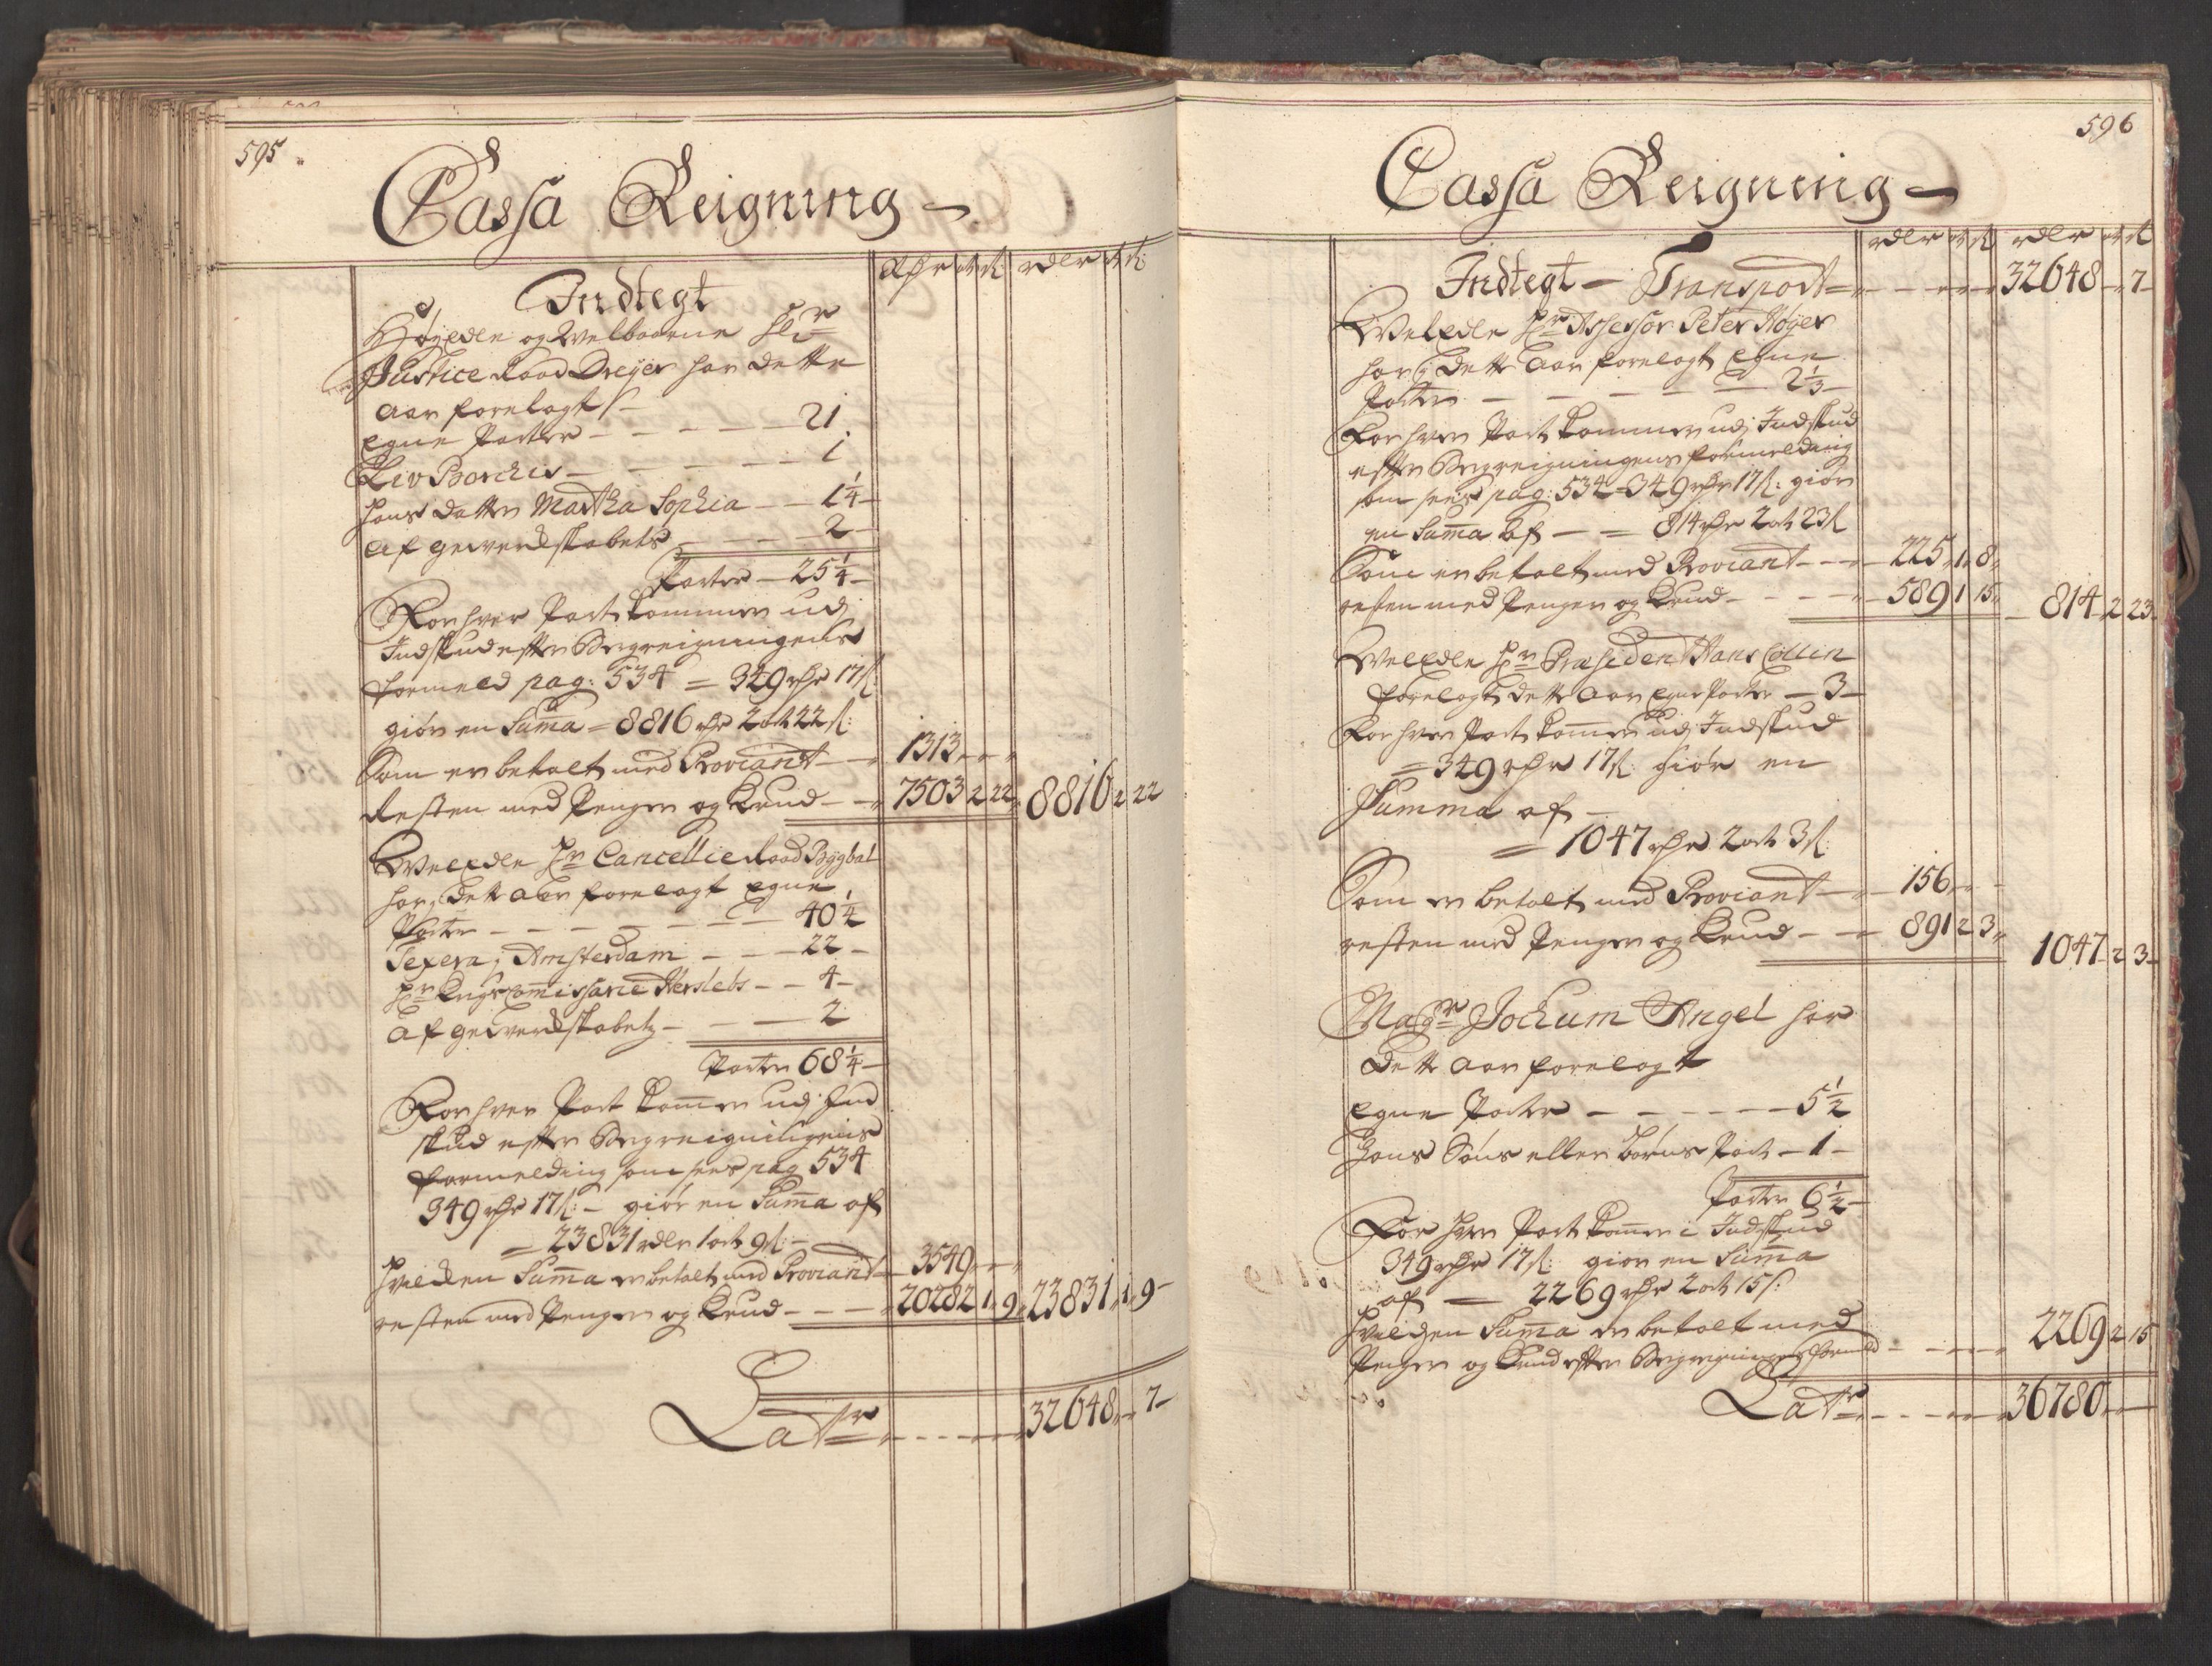 595
Cassa Reigning
Rdr ort ß rdlr ort ß
Indtegt
Høyedle og Welbaarne Hr
Justice Raad Dreyer har dette
Aar forelagt
Egne Parter - - - - - 21
Liv Borchis - - - - - 1
Hans datter Martha Sophia - - 1 1/4
Af gewerckskabets - - - - 2
Parter - 25 1/4
For hver Part kommer udj
Indskud efter Beregningens
formeld pag: 534 = 349 rdr 17 ß:
giør en Suma = 8816 rdr 2 ort 22 ß:
Som er betalt med Proviant - 1313 " "
Resten med Penger og Krud - 7503 2 22 8816 2 22
Welædle Hr Cancellie Raad Bygbal
har dette Aar forelagt Egne
Parter - - - - - - 40 1/4
Texera i Amsterdam - - - 22
Hr Krigs Comissarie Herslebs - - 4
Af gewerckskabetz - - - 2
Parter 68 1/4
For hver Part komer udj Ind
skud efter Beregningens
formelding som sees pag 534
349 rdr 17 ß: - giør en Suma af
= 23831 rdlr 1 ort 9 ß: -
Hvilcken Suma er betalt med Proviant 3549 " "
resten med Penger og Krud - - - 20282 1 9 23831 1 9
Latr - - - - - 32648 " 7
596
Cassa Reigning
rdlr ort ß rdlr ort ß
Indtegt - Transport - - - - 32648 " 7
Welædle Hr Assessor Peter Høyer
har i dette Aar forelagt Egne
Parter - - - - - - 2 1/3
For hver Part kommer udj Indskud
efter Beregningens formelding
som sees pag: 534 = 349 rdr 17 ß: giør
en Suma af - = 814 rdr 2 ort 23 ß
Som er betalt med Proviant - - - 225 1 8
resten med Penger og Krud - - - - 589 1 15 814 2 23
Welædle Hr Præsident Hans Collin
forelagt dette Aar Egne Parter - 3
For hver Part komer udj Indskud
= 349 rdr 17 ß: Giør en
Summa af -
= 1047 rdr 2 ort 3 ß:
Som er betalt med Proviant - 156 " "
resten med Penger og Krud - - 891 2 3 1047 2 3
Magr Jochum Angel har
dette Aar forelagt
Egne Parter - - - - - 5 1/2
Hans Søns eller børns Part - 1 -
Parter 6 1/2
For hver Part komer i Indskud
349 rdr 17 ß: giør en Suma
af - 2269 rdr 2 ort 15 ß:
Hvilcken Suma er betalt med
Penger og Krud efter Beregningens formeld - - - - 2269 2 15
Latr - - - - - 36780 " "